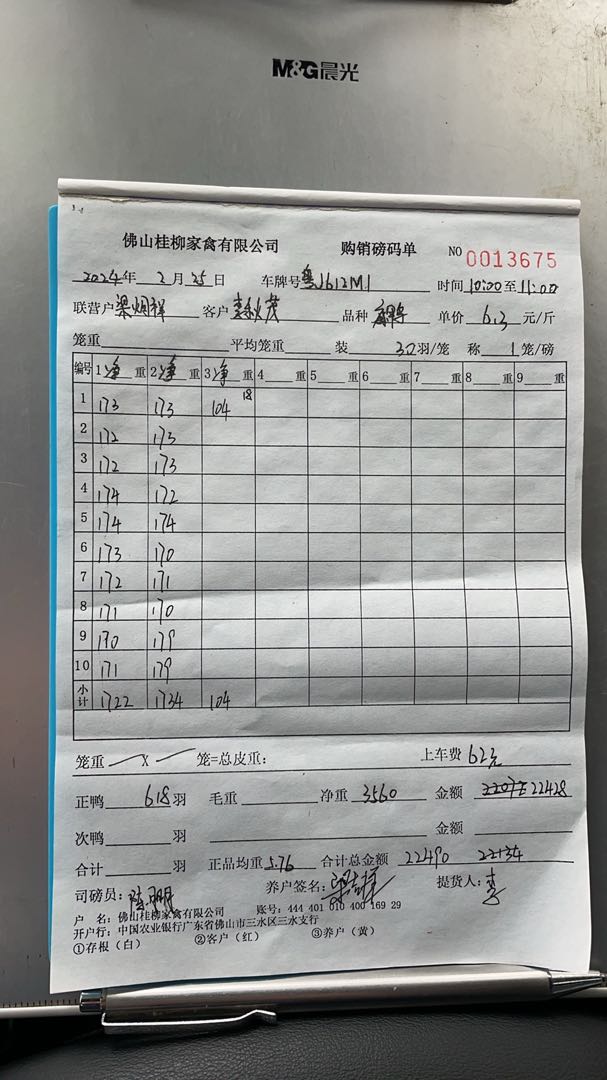 M&G晨光
佛山桂柳家禽有限公司 购销磅码单 NO 0013675
2024年 2月 25日 车牌号 粤J612M1 时间 10:00至11:00
联营户 客户 品种 单价 6.3 元/斤
笼重 平均笼重 装 30 羽/笼 称 1 笼/磅
编号 1 净 重 2 净 重 3 净 重 4 重 5 重 6 重 7 重 8 重 9 重
1 173 173 104 18
2 172 173
3 172 173
4 174 172
5 174 174
6 173 170
7 172 171
8 171 170
9 170 179
10 171 179
小计 1722 1734 104
笼重 X 笼=总皮重： 上车费 62元
正鸭 618 羽 毛重 净重 3560 金额 22428
次鸭 羽 金额
合计 羽 正品均重 5.76 合计总金额 22490 22134
司磅员： 养户签名： 提货人：
户 名：佛山桂柳家禽有限公司 账号：444 401 010 400 169 29
开户行：中国农业银行广东省佛山市三水区三水支行
①存根（白） ②客户（红） ③养户（黄）